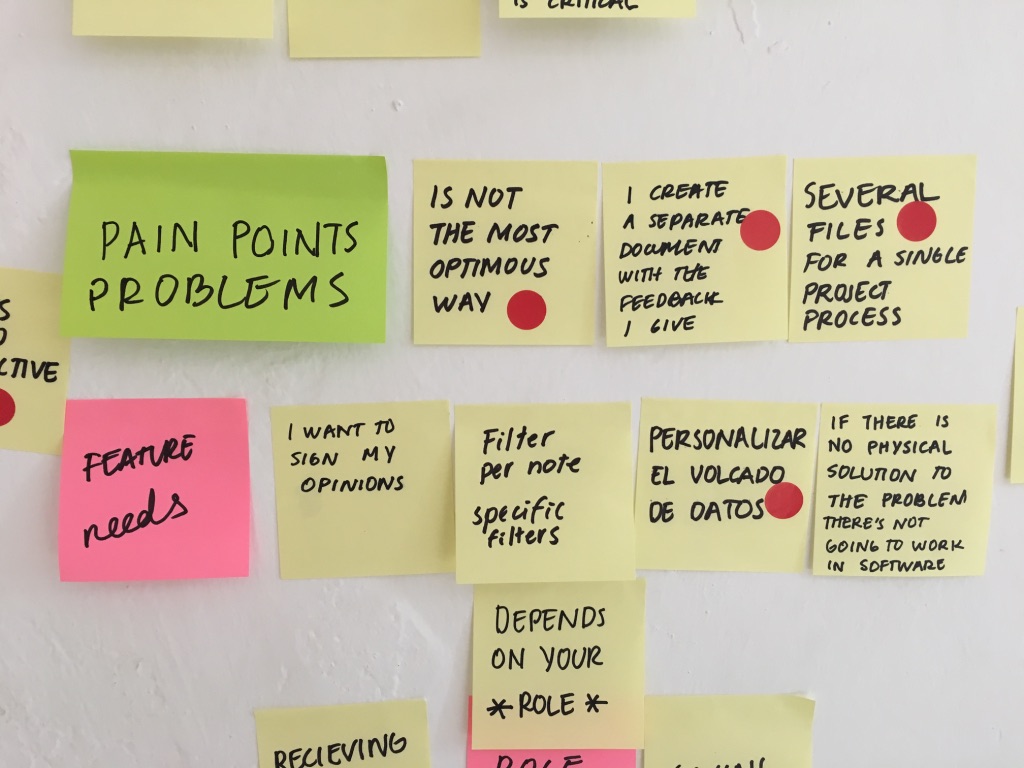 IS CRITICAL
PAIN POINTS
PROBLEMS
IS NOT
THE MOST
OPTIMOUS
WAY
I CREATE
A SEPARATE
DOCUMENT
WITH THE
FEEDBACK
I GIVE
SEVERAL
FILES
FOR A SINGLE
PROJECT
PROCESS
FEATURE
needs
I WANT TO
SIGN MY
OPINIONS
Filter
per note
specific
filters
DEPENDS
ON YOUR
*ROLE*
PERSONALIZAR
EL VOLCADO
DE DATOS
IF THERE IS
NO PHYSICAL
SOLUTION TO
THE PROBLEM
THERE'S NOT
GOING TO WORK
IN SOFTWARE
RECIEVING
ROLE